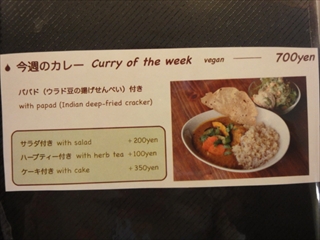 今週のカレー Curry of the week vegan 700yen
パパド（ウラド豆の揚げせんべい）付き
with papad (Indian deep-fried cracker)
サラダ付き with salad +200yen
ハーブティー付き with herb tea +100yen
ケーキ付き with cake +350yen